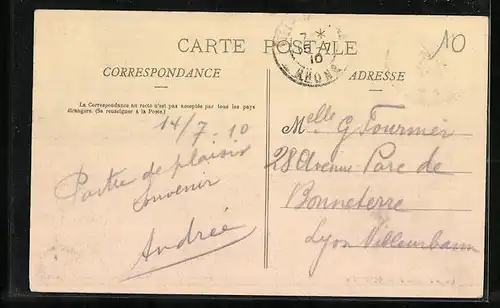 CARTE POSTALE
10
7 *
15 -7
10
RHONE
CORRESPONDANCE
ADRESSE
La Correspondance au recto n'est pas acceptée par tous les pays
étrangers. (Se renseigner à la Poste.)
14/7-10
Partie de plaisir
Souvenir
Andrée
Melle G Fournier
28 Avenue Parc de
Bonneterre
Lyon Villeurbanne